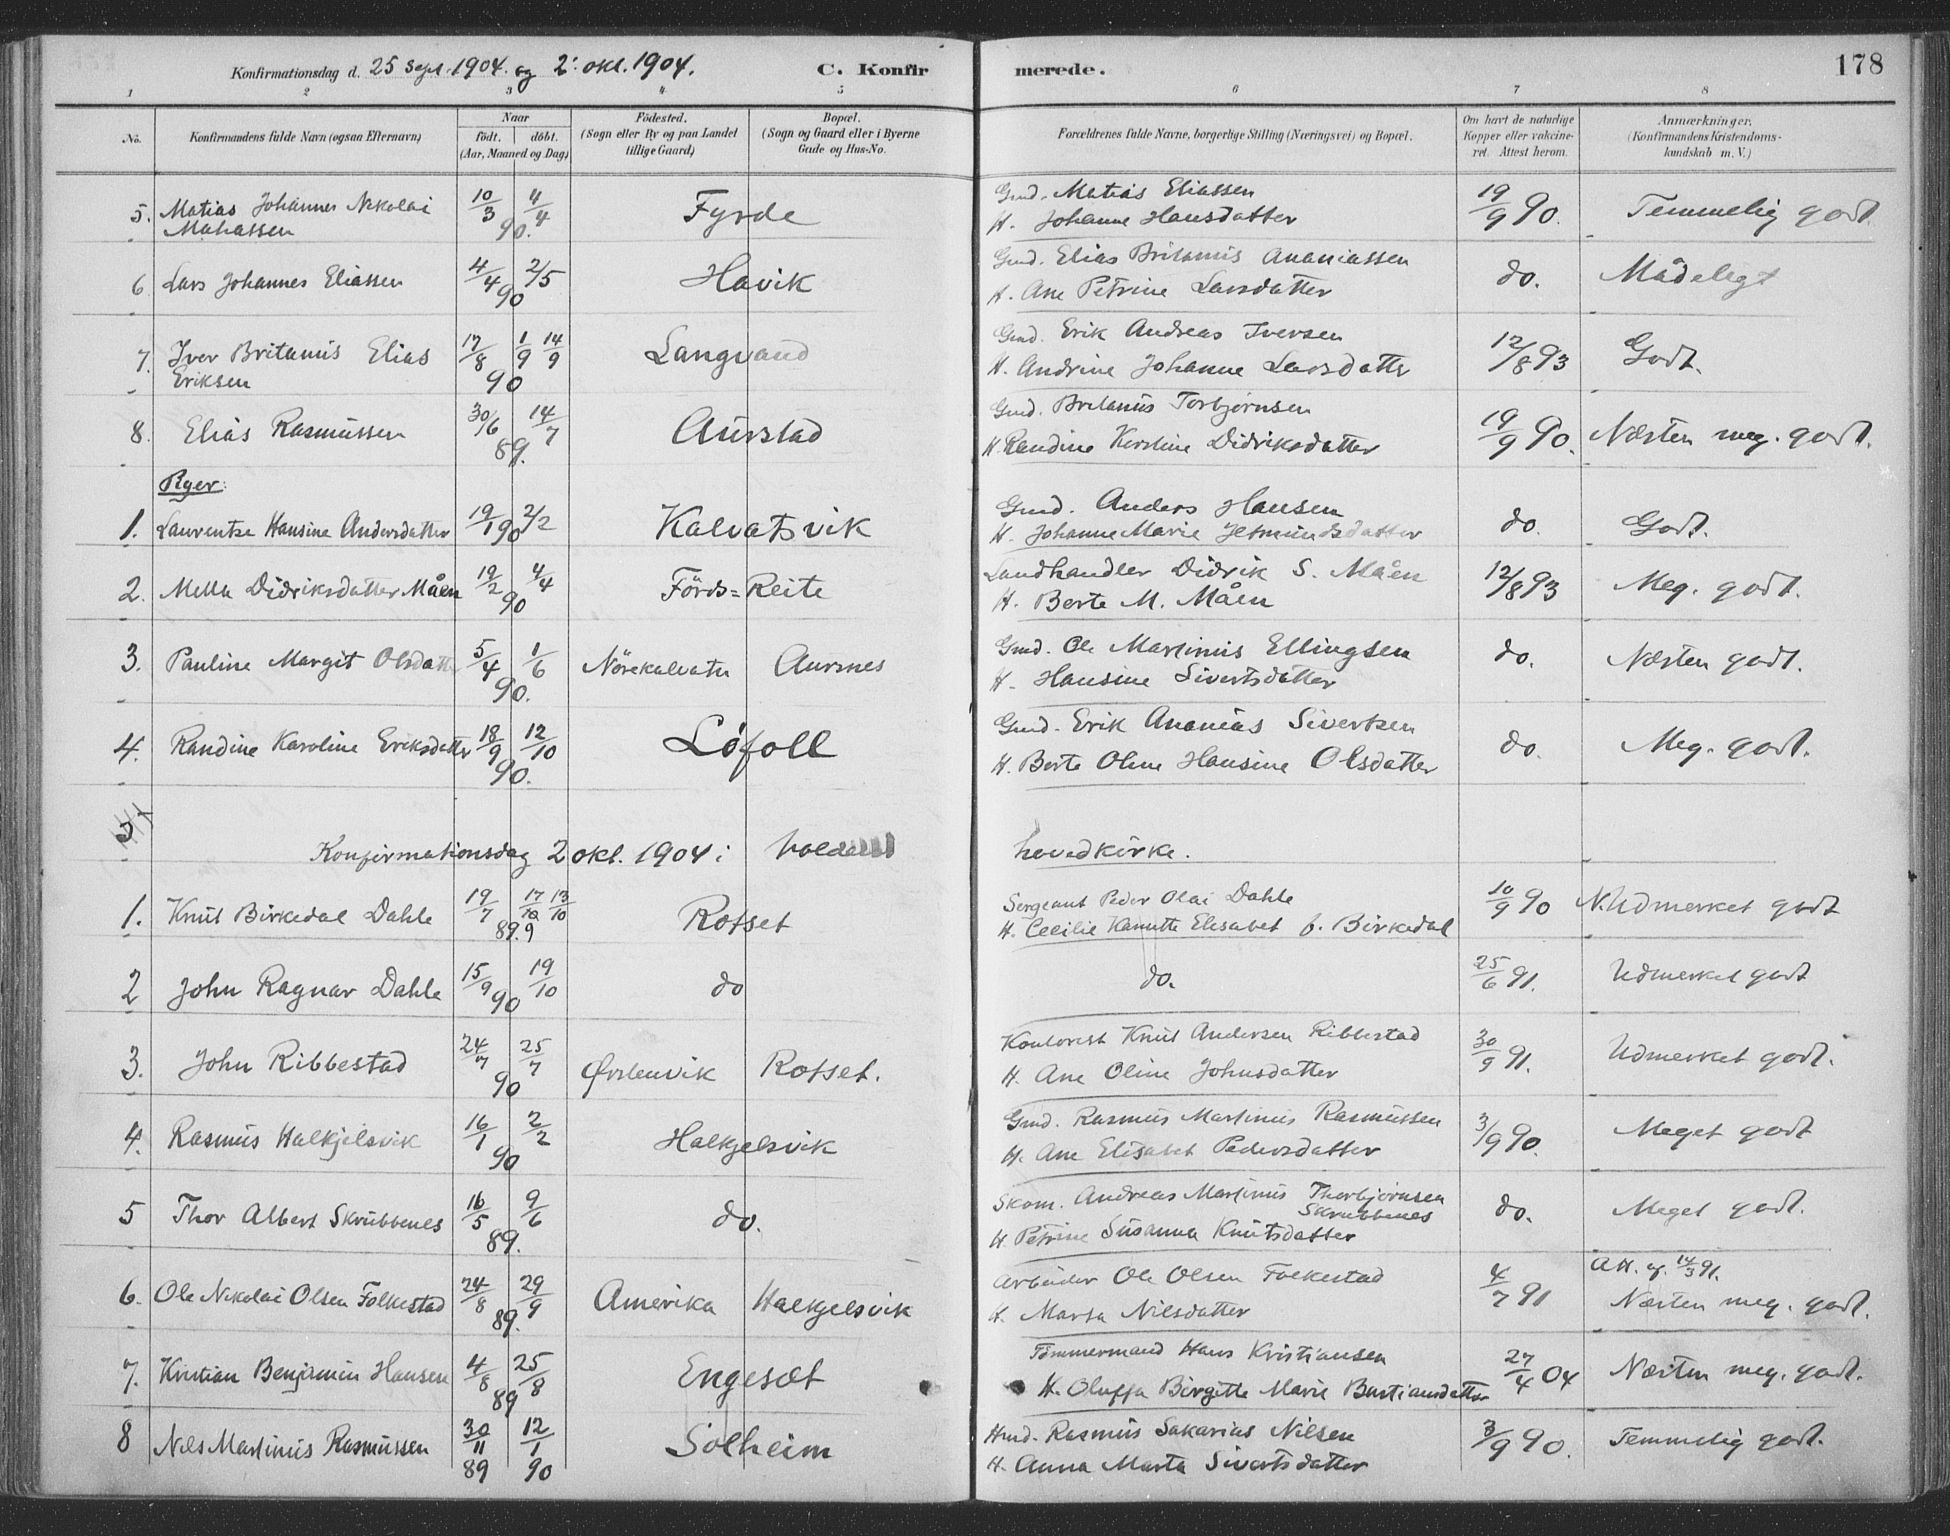 Konfirmationsdag d. 25 Sept. 1904. og 2. okt. 1904. C. Konfirmerede. 178
1 2 3 4 5 6 7 8
No. Konfirmandens fulde Navn (ogsaa Efternavn) Naar födt. döbt. (Aar, Maaned og Dag) Födested. (Sogn eller By og paa Landet tillige Gaard) Bopæl. (Sogn og Gaard eller i Byerne Gade og Hus-No. Forældrenes fulde Navne, borgerlige Stilling (Næringsvei) og Bopæl. Om havt de naturlige Kopper eller vakcineret. Attest herom. Anmærkninger. (Konfirmandens Kristendomskundskab m. V.)
5. Matias Johannes Nikolai 10/3 4/4 Fyrde Gmd. Matias Eliassen 19/9 90. Temmelig godt.
Matiassen 90. H. Johanne Hansdatter
6 Lars Johannes Eliassen 4/4 2/5 Havik Gmd. Elias Britanus Ananiassen do. Mådeligt
90 H. Ane Petrine Larsdatter
7. Iver Britanus Elias 17/8 1/9 14/9 Langvand Gmd. Erik Andreas Iversen 12/8 93 Godt.
Eriksen 90 H. Andrine Johanne Larsdatter
8. Elias Rasmussen 30/6 14/7 Aurstad Gmd. Britanus Torbjørnsen 19/9 90. Næsten meg. godt.
89. H. Randine Kirstine Didriksdatter
Piger:
1. Laurentse Hansine Andersdatter 19/1 90 2/2 Kalvatsvik Gmd. Anders Hansen do. Godt.
H. Johanne Marie Jetmundsdatter
2. Mella Didriksdatter Måen 19/2 4/4 Förds=Reite Landhandler Didrik S. Måen 12/8 93 Meg. godt.
90 H. Berte M. Måen
3. Pauline Margit Olsdatter 5/4 1/6 Nörekalvatn Aursnes Gmd. Ole Martinus Ellingsen do. Næsten godt.
90. H. Hansine Sivertsdatter
4. Randine Karoline Eriksdatter 18/9 12/10 Löfoll Gmd. Erik Ananias Sivertsen do. Meg. godt.
90. H. Berte Oline Hansine Olsdatter
Konfirmationsdag 2 okt. 1904 i Volden hovedkirke.
1. Knut Birkedal Dahle 19/7 17/10 13/10 Rotset Sergeant Peder Olai Dahle 10/9 90 N. Udmerket godt
89. 9 H. Cecilie Kanutte Elisabet f. Birkedal
2 John Ragnar Dahle 15/9 19/10 do do. 25/6 91. Udmerket godt
90
3. John Ribbestad 24/7 25/7 Ørstenvik Rotset. Kontorist Knut Andersen Ribbestad 30/9 91. Udmerket godt.
90 H. Ane Oline Johnsdatter
4. Rasmus Halkjelsvik 16/1 2/2 Halkjelsvik Gmd. Rasmus Martinus Rasmussen 3/9 90. Meget godt
90 H. Ane Elisabet Pedersdatter
5 Thor Albert Skrubbenes 16/5 9/6 do. Skom. Andreas Martinus Thorbjørnsen Skrubbenes do. Meget godt.
89. H. Petrine Susanna Knutsdatter
6. Ole Nikolai Olsen Folkestad 24/8 29/9 Amerika Halkjelsvik Arbeider Ole Olsen Folkestad 4/7 91 Att. af 14/3 91.
89. H. Marta Nilsdatter Næsten meg. godt.
7. Kristian Benjamin Hansen 4/8 25/8 Engeset Tömmermand Hans Kristiansen 27/4 04 Næsten meg. godt.
89 H. Oluffa Birgitte Marie Bastiansdatter
8 Nils Martinus Rasmussen 30/11 12/1 Solheim Hmd. Rasmus Sakarias Nilsen 3/9 90. Temmelig godt.
89 90 H. Anna Marta Sivertsdatter